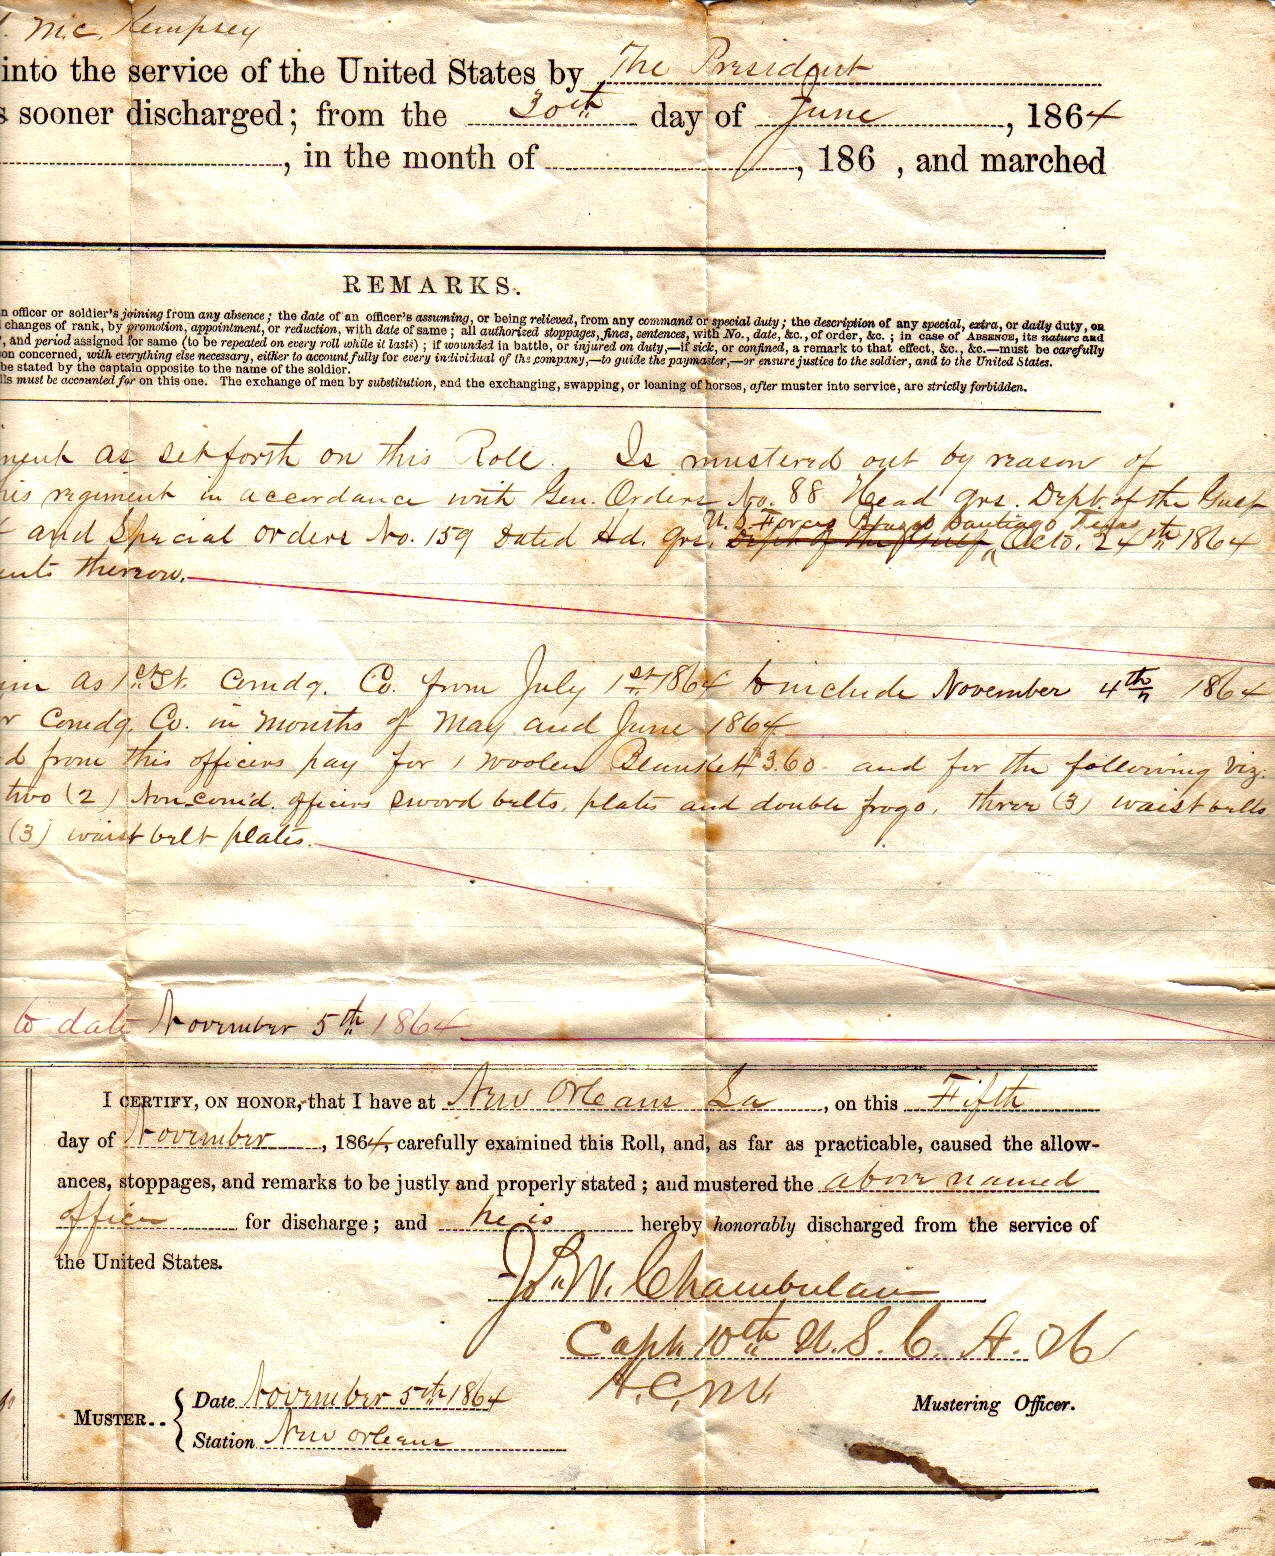 Mc. Kempsey
into the service of the United States by The President
s sooner discharged; from the 30th day of June, 1864
, in the month of , 186 , and marched
REMARKS.
n officer or soldier's joining from any absence; the date of an officer's assuming, or being relieved, from any command or special duty; the description of any special, extra, or daily duty, on
changes of rank, by promotion, appointment, or reduction, with date of same; all authorized stoppages, fines, sentences, with No., date, &c., of order, &c.; in case of ABSENCE, its nature and
, and period assigned for same (to be repeated on every roll while it lasts); if wounded in battle, or injured on duty,—if sick, or confined, a remark to that effect, &c., &c.—must be carefully
on concerned, with everything else necessary, either to account fully for every individual of the company,—to guide the paymaster,—or ensure justice to the soldier, and to the United States.
be stated by the captain opposite to the name of the soldier.
lls must be accounted for on this one. The exchange of men by substitution, and the exchanging, swapping, or loaning of horses, after muster into service, are strictly forbidden.
ment as set forth on this Roll. Is mustered out by reason of
his regiment in accordance with Gen. Orders No. 88 Head Qrs. Dept. of the Gulf
U. S. Forces Brazos Santiago Texas
and Special Orders No. 159 Dated Hd. Qrs. Dept of the Gulf Octo. 24th 1864
ents thereon.
as 1st Lt. Comdg. Co. from July 1st 1864 to include November 4th 1864
r Comdg. Co. in months of May and June 1864
d from this officers pay for 1 Woolen Blanket $3.60 and for the following viz.
two (2) Non. Com'd. officers sword belts, plates and double frogs, three (3) waist belts
(3) waist belt plates.
to date November 5th 1864
I CERTIFY, ON HONOR, that I have at New Orleans La, on this Fifth
day of November, 1864, carefully examined this Roll, and, as far as practicable, caused the allow-
ances, stoppages, and remarks to be justly and properly stated; and mustered the above named
officer for discharge; and he is hereby honorably discharged from the service of
the United States.
Jo. W. Chamberlain
Capt. 10th U. S. C. A. H
A. C. M.
Mustering Officer.
MUSTER.. Date November 5th 1864
Station New Orleans